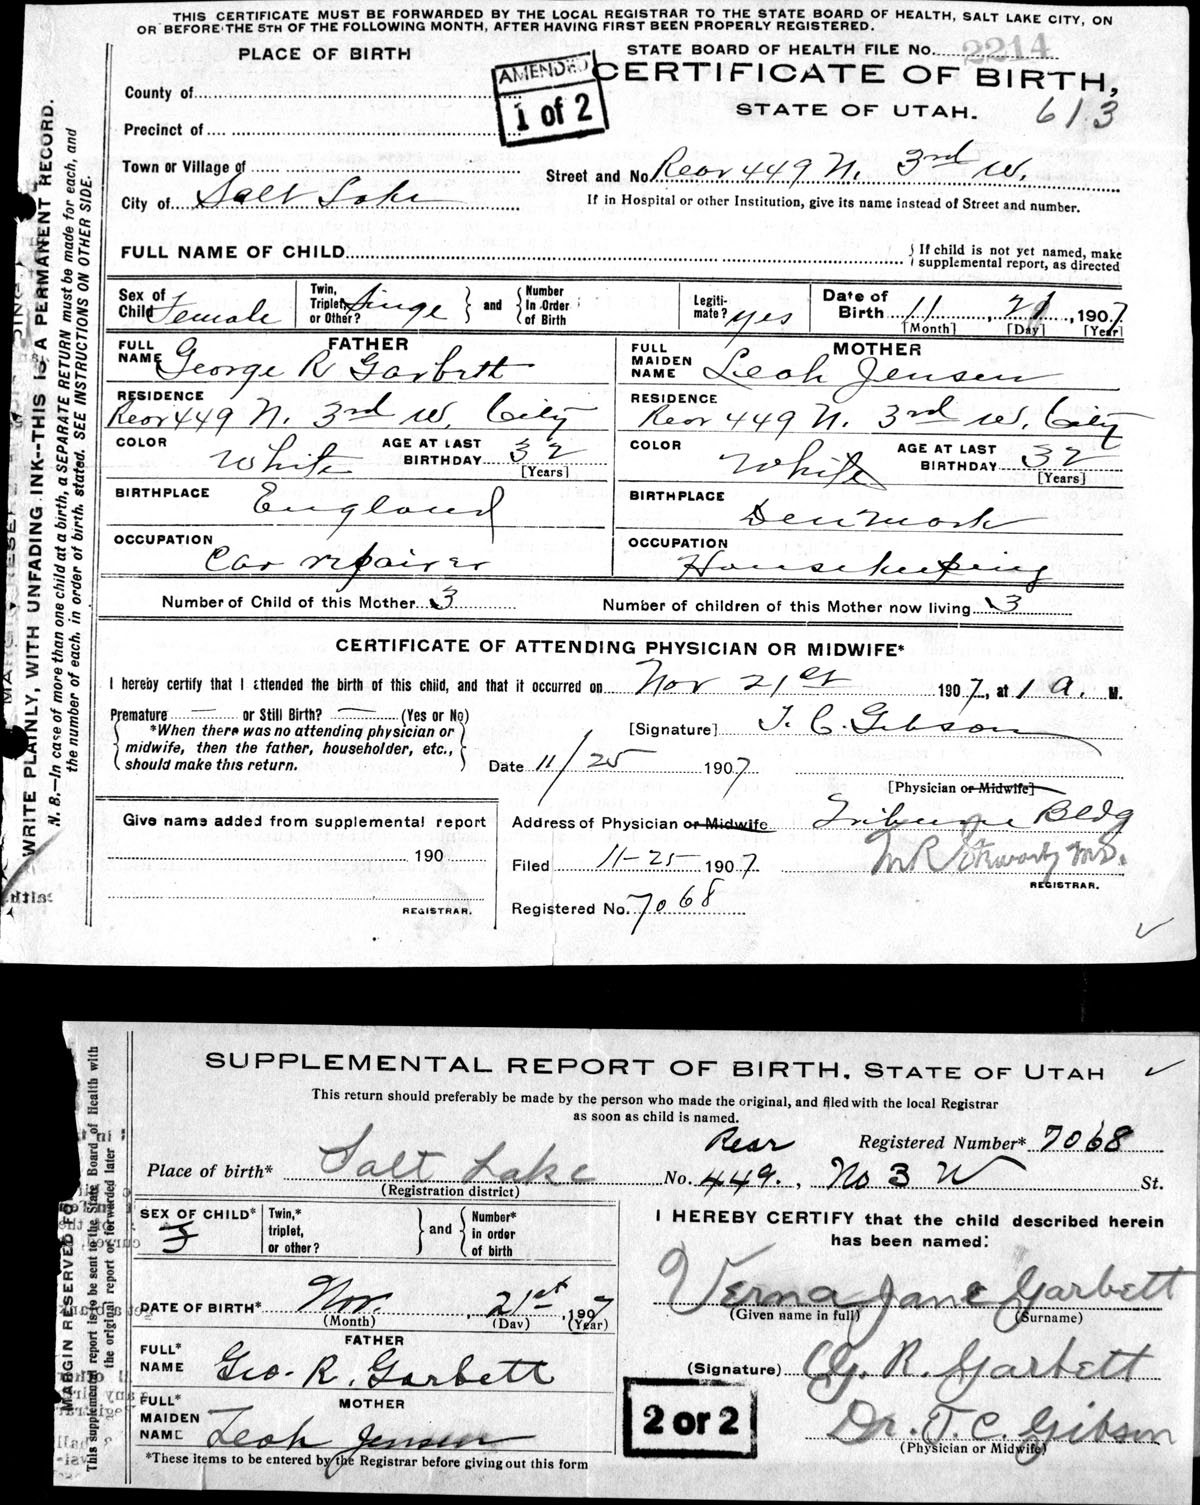 THIS CERTIFICATE MUST BE FORWARDED BY THE LOCAL REGISTRAR TO THE STATE BOARD OF HEALTH, SALT LAKE CITY, ON
OR BEFORE THE 5TH OF THE FOLLOWING MONTH, AFTER HAVING FIRST BEEN PROPERLY REGISTERED.
PLACE OF BIRTH
STATE BOARD OF HEALTH FILE No. 2214
AMENDED
1 of 2
CERTIFICATE OF BIRTH,
STATE OF UTAH. 613
County of
Precinct of
Town or Village of
City of Salt Lake
Street and No. Rear 449 N. 3rd W.
If in Hospital or other Institution, give its name instead of Street and number.
FULL NAME OF CHILD
{ If child is not yet named, make
supplemental report, as directed
Sex of Child Female
Twin, Triplet, or Other? Singe
and
Number In Order of Birth
Legiti-mate? yes
Date of Birth 11, 21, 1907
[Month] [Day] [Year]
FATHER
FULL NAME George R Garbett
RESIDENCE Rear 449 N. 3rd W. City
COLOR White
AGE AT LAST BIRTHDAY 32 [Years]
BIRTHPLACE England
OCCUPATION Car repairer
MOTHER
FULL MAIDEN NAME Leah Jensen
RESIDENCE Rear 449 N. 3rd W. City
COLOR White
AGE AT LAST BIRTHDAY 32 [Years]
BIRTHPLACE Denmark
OCCUPATION Housekeeping
Number of Child of this Mother 3
Number of children of this Mother now living 3
CERTIFICATE OF ATTENDING PHYSICIAN OR MIDWIFE*
I hereby certify that I attended the birth of this child, and that it occurred on Nov 21st 1907, at 1 a. M.
Premature — or Still Birth? — (Yes or No)
*When there was no attending physician or
midwife, then the father, householder, etc.,
should make this return.
[Signature] T. C. Gibson
Date 11/25 1907
[Physician or Midwife]
Give name added from supplemental report
190
REGISTRAR.
Address of Physician or Midwife Tribune Bldg
Filed 11-25 1907
REGISTRAR.
Registered No. 7068
WRITE PLAINLY, WITH UNFADING INK--THIS IS A PERMANENT RECORD.
N. B.—In case of more than one child at a birth, a SEPARATE RETURN must be made for each, and
the number of each, in order of birth, stated. SEE INSTRUCTIONS ON OTHER SIDE.
SUPPLEMENTAL REPORT OF BIRTH, STATE OF UTAH
This return should preferably be made by the person who made the original, and filed with the local Registrar
as soon as child is named.
Registered Number* 7068
Place of birth* Salt Lake
(Registration district)
Rear
No. 449., No 3 W St.
SEX OF CHILD* F
Twin,* triplet, or other?
and
Number* in order of birth
DATE OF BIRTH* Nov. 21st, 1907
(Month) (Day) (Year)
FATHER
FULL* NAME Geo. R. Garbett
MOTHER
FULL* MAIDEN NAME Leah Jensen
*These items to be entered by the Registrar before giving out this form
I HEREBY CERTIFY that the child described herein
has been named:
Verna Jane Garbett
(Given name in full) (Surname)
(Signature) G. R. Garbett
Dr. T. C. Gibson
(Physician or Midwife)
2 or 2
MARGIN RESERVED FO
This supplemental report is to be sent to the State Board of Health with
the original report or forwarded later